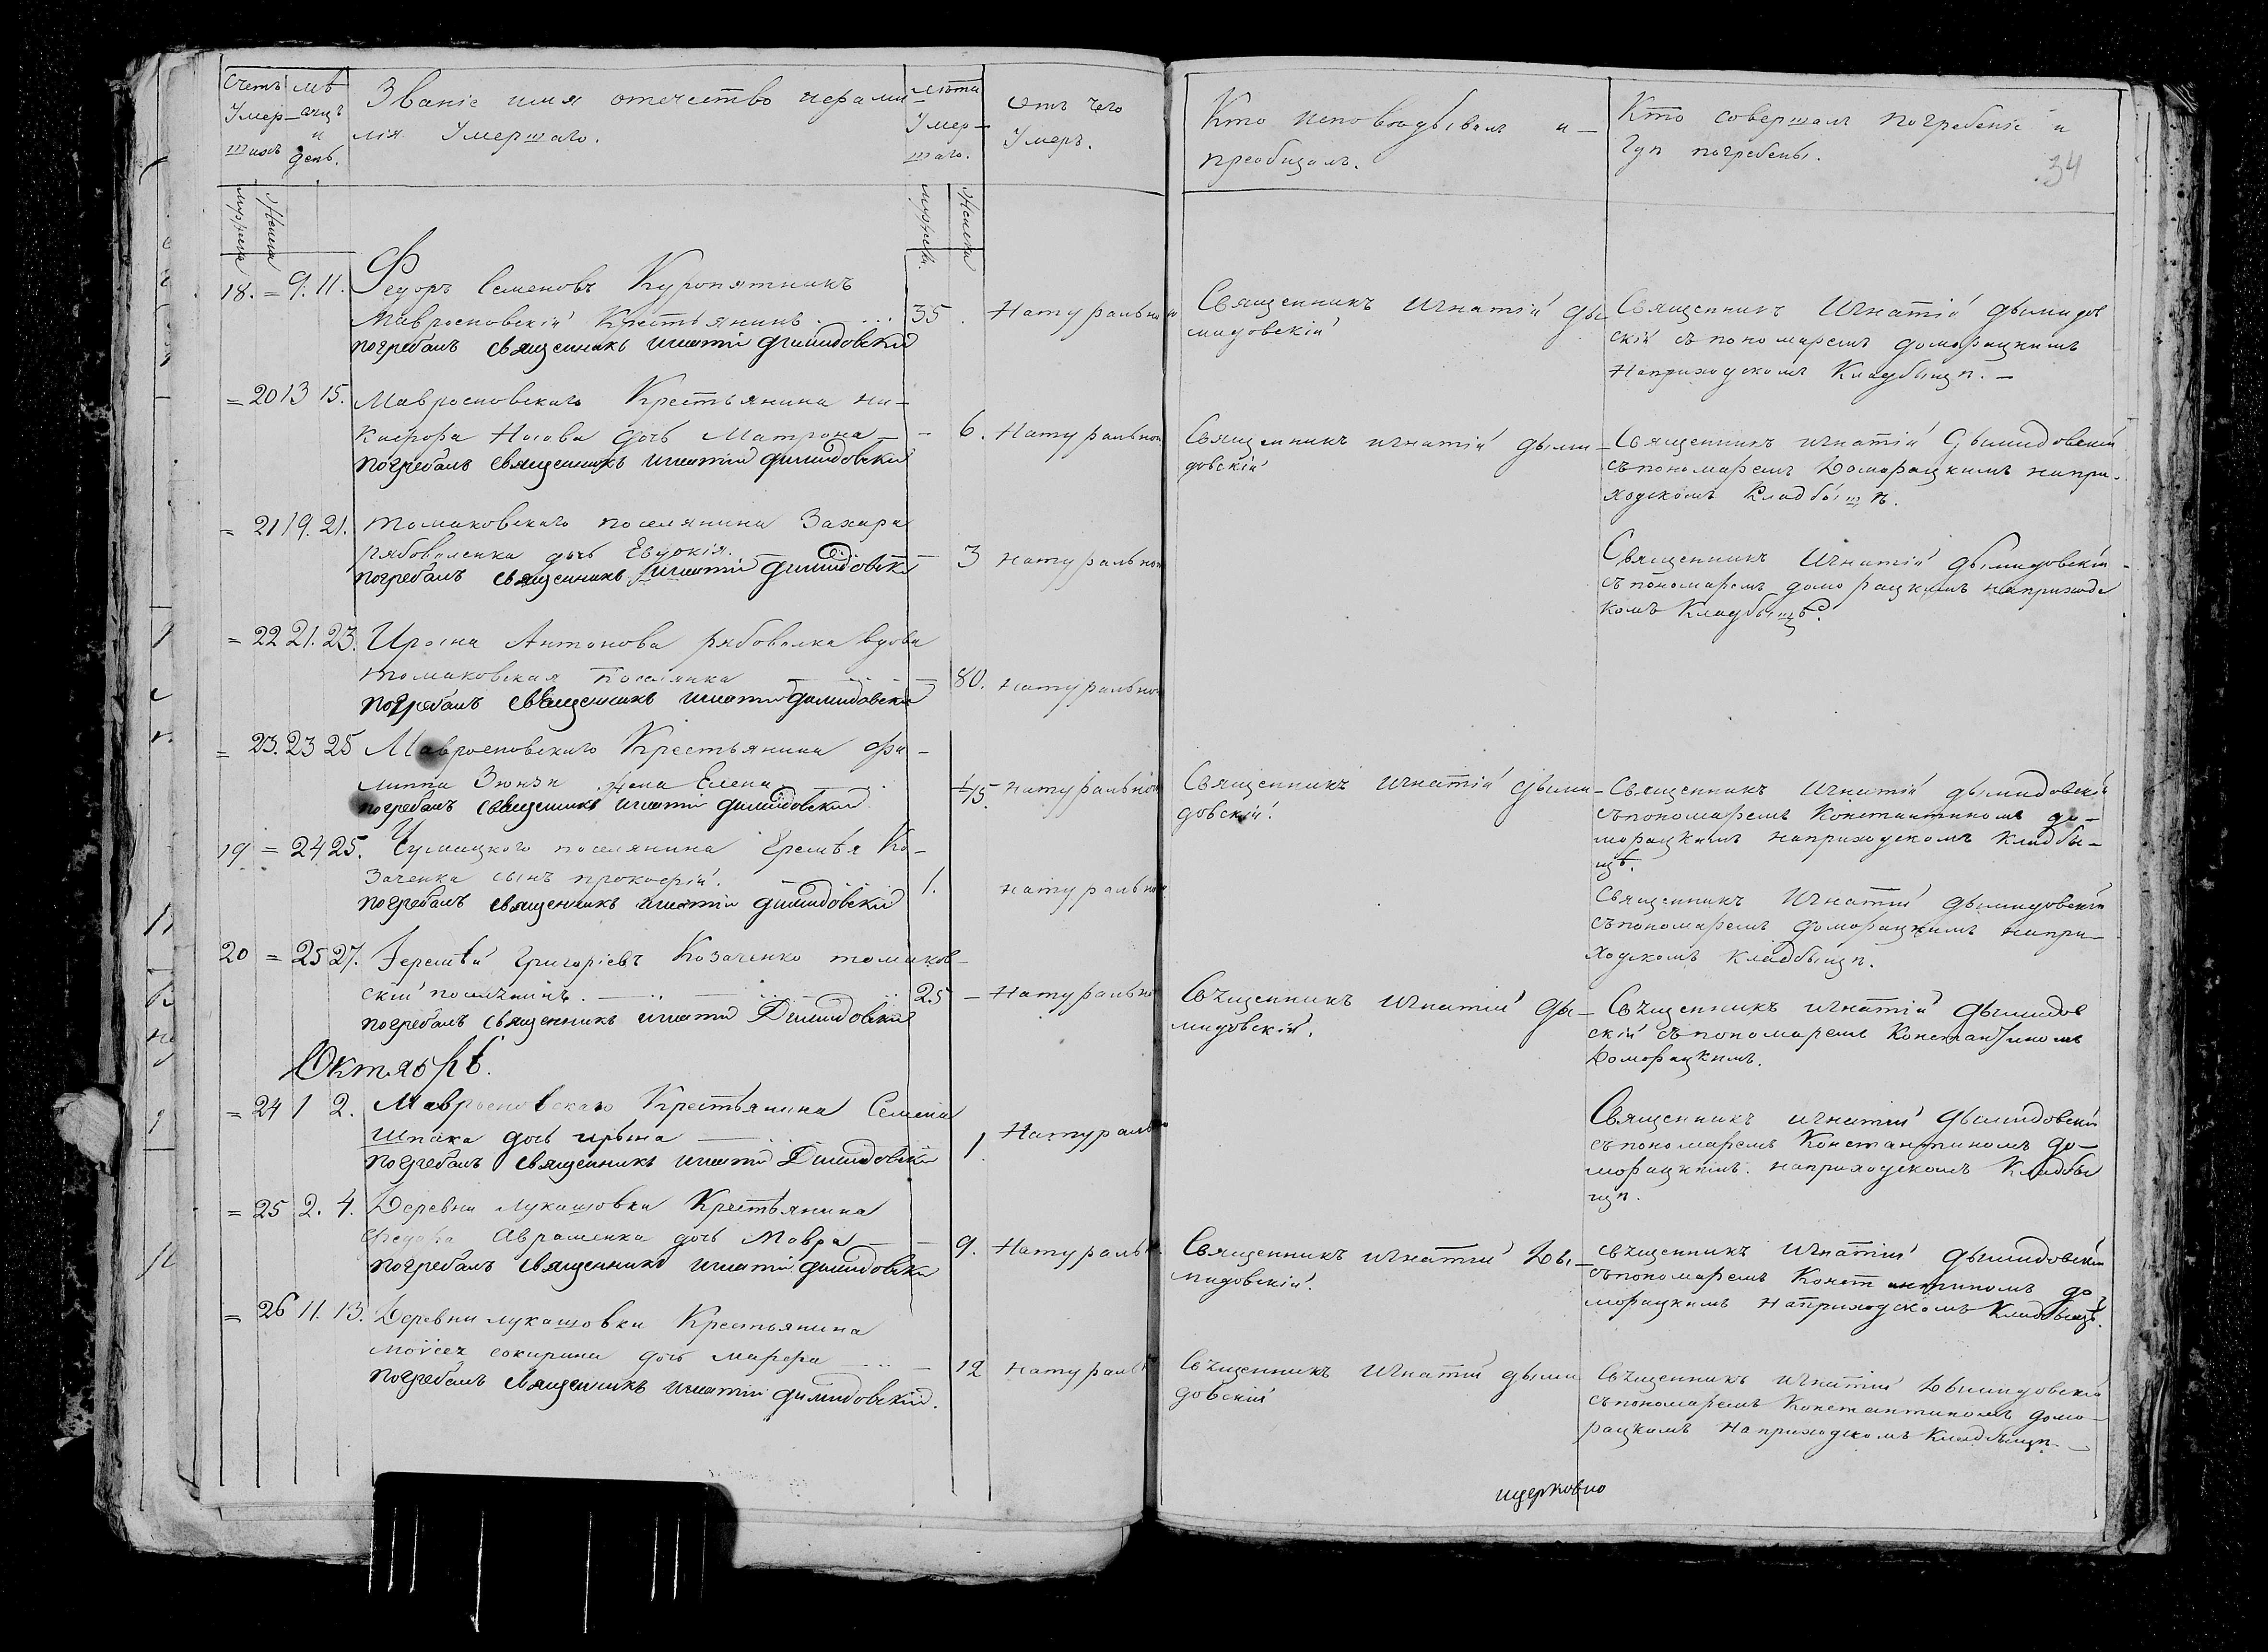 Счетъ мѣ
Умер- сяцъ
шихъ и день.
Званіе имя отечество и фами
лія Умершаго.
лѣта
Умер-
шаго.
отъ чего
Умеръ.
Кто исповѣдывалъ и
преобщалъ.
Кто совершалъ погребеніе и
гдѣ погребены.
34
мужеска Женска
мужеска. Женска
18. = 9. 11. Федоръ Семеновъ Куропятникъ
Мавроеновскій Крестьянинъ. 35. Натуральной
погребалъ священникъ игнатій Димидовскій
Священникъ Игнатій ды
мидовскій
Священникъ Игнатій дымидов
скій съ пономаремъ доморацкимъ
На приходскомъ Кладбыщѣ.
= 20 13 15. Мавроеновскаго Крестьянина Ни-
кифора Носова дочь Матрона - 6. Натуральной
погребалъ священникъ игнатій димидовскій
Священникъ игнатій дыми-
довскій
Священникъ игнатій Дымидовскій
съ пономаремъ Доморацкимъ на при-
ходскомъ Кладбыщѣ.
= 21 19. 21. томаковскаго поселянина Захара
рябоволенка дочь Евдокія. - 3 натуральной
погребалъ священникъ игнатій димидовскій
Священникъ Игнатій дымидовскій
съ пономаремъ доморацкимъ на приходс
комъ Кладбыщѣ.
= 22 21. 23. Ирина Антонова рябоволка вдова
томаковская поселянка - 80. натуральной
погребалъ священникъ игнатій димидовскій
= 23. 23 25 Мавроеновскаго Крестьянина Фи-
липпа Зюнзи жена Елена 45. натуральной
погребалъ священникъ игнатій димидовскій
Священникъ Игнатій дыми-
довскій.
Священникъ Игнатій дымидовскій
съ пономаремъ Константиномъ до-
морацкимъ на приходскомъ кладбы-
щѣ.
19 = 24 25. Чумацкого поселянина Еремѣя Ко-
заченка сынъ прокофій. 1. натуральной
погребалъ священникъ игнатій димидовскій
Священникъ Игнатій дымидовскій
съ пономаремъ доморацкимъ на при-
ходскомъ кладбыщѣ.
20 = 25 27. Іеремѣй Григоріевъ Козаченко томаков-
скій поселянинъ. 25 - Натуральной
погребалъ священникъ игнатій Димидовскій
Священникъ Игнатій Ды-
мидовскій.
Священникъ игнатій Дымидов
скій съ пономаремъ Константиномъ
Доморацкимъ.
Октябрь.
= 24 1 2. Мавроеновскаго Крестьянина Семена
Шпака дочь ирына 1. Натуральной
погребалъ священникъ игнатій Димидовскій
Священникъ игнатій Дымидовскій
съ пономаремъ Константиномъ до-
морацкимъ. на приходскомъ Кладбы
щѣ.
= 25 2. 4. Деревни лукашовки Крестьянина
Федора Авраменка дочь Мавра - 9. Натуральной
погребалъ священникъ игнатій димидовскій
Священникъ игнатій Ды-
мидовскій.
священникъ Игнатій дымидовскій
съ пономаремъ Константиномъ до-
морацкимъ На приходскомъ Кладбыщѣ.
= 26 11. 13. Деревни лукашовки Крестьянина
Моисея сокирина дочь марфа - 12 натуральной
погребалъ священникъ игнатій димидовскій.
Священникъ Игнатій дыми
довскій
Священникъ игнатій Дымидовскій
съ пономаремъ Константиномъ домо-
рацкимъ На приходскомъ Кладбыщѣ.
ицерковно